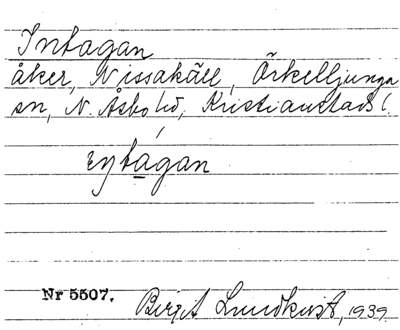 Intagan
åker, Nissakäll, Örkelljunga
sn, N. Åsbo hd, Kristianstads l.
intágan
Nr 5507.
Birgit Lundkvist, 1939